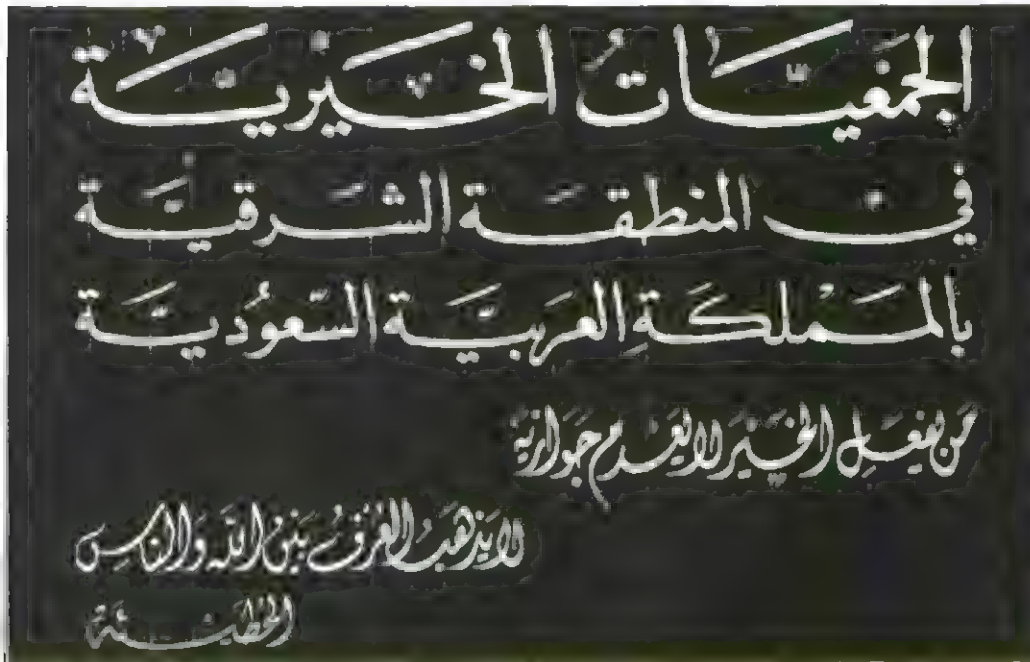 الجمعيات الخيرية
في المنطقة الشرقية
بالمملكة العربية السعودية
من يفعل الخير لا يعدم جوازيه
لا يذهب العرف بين الله والناس
الحطيئة